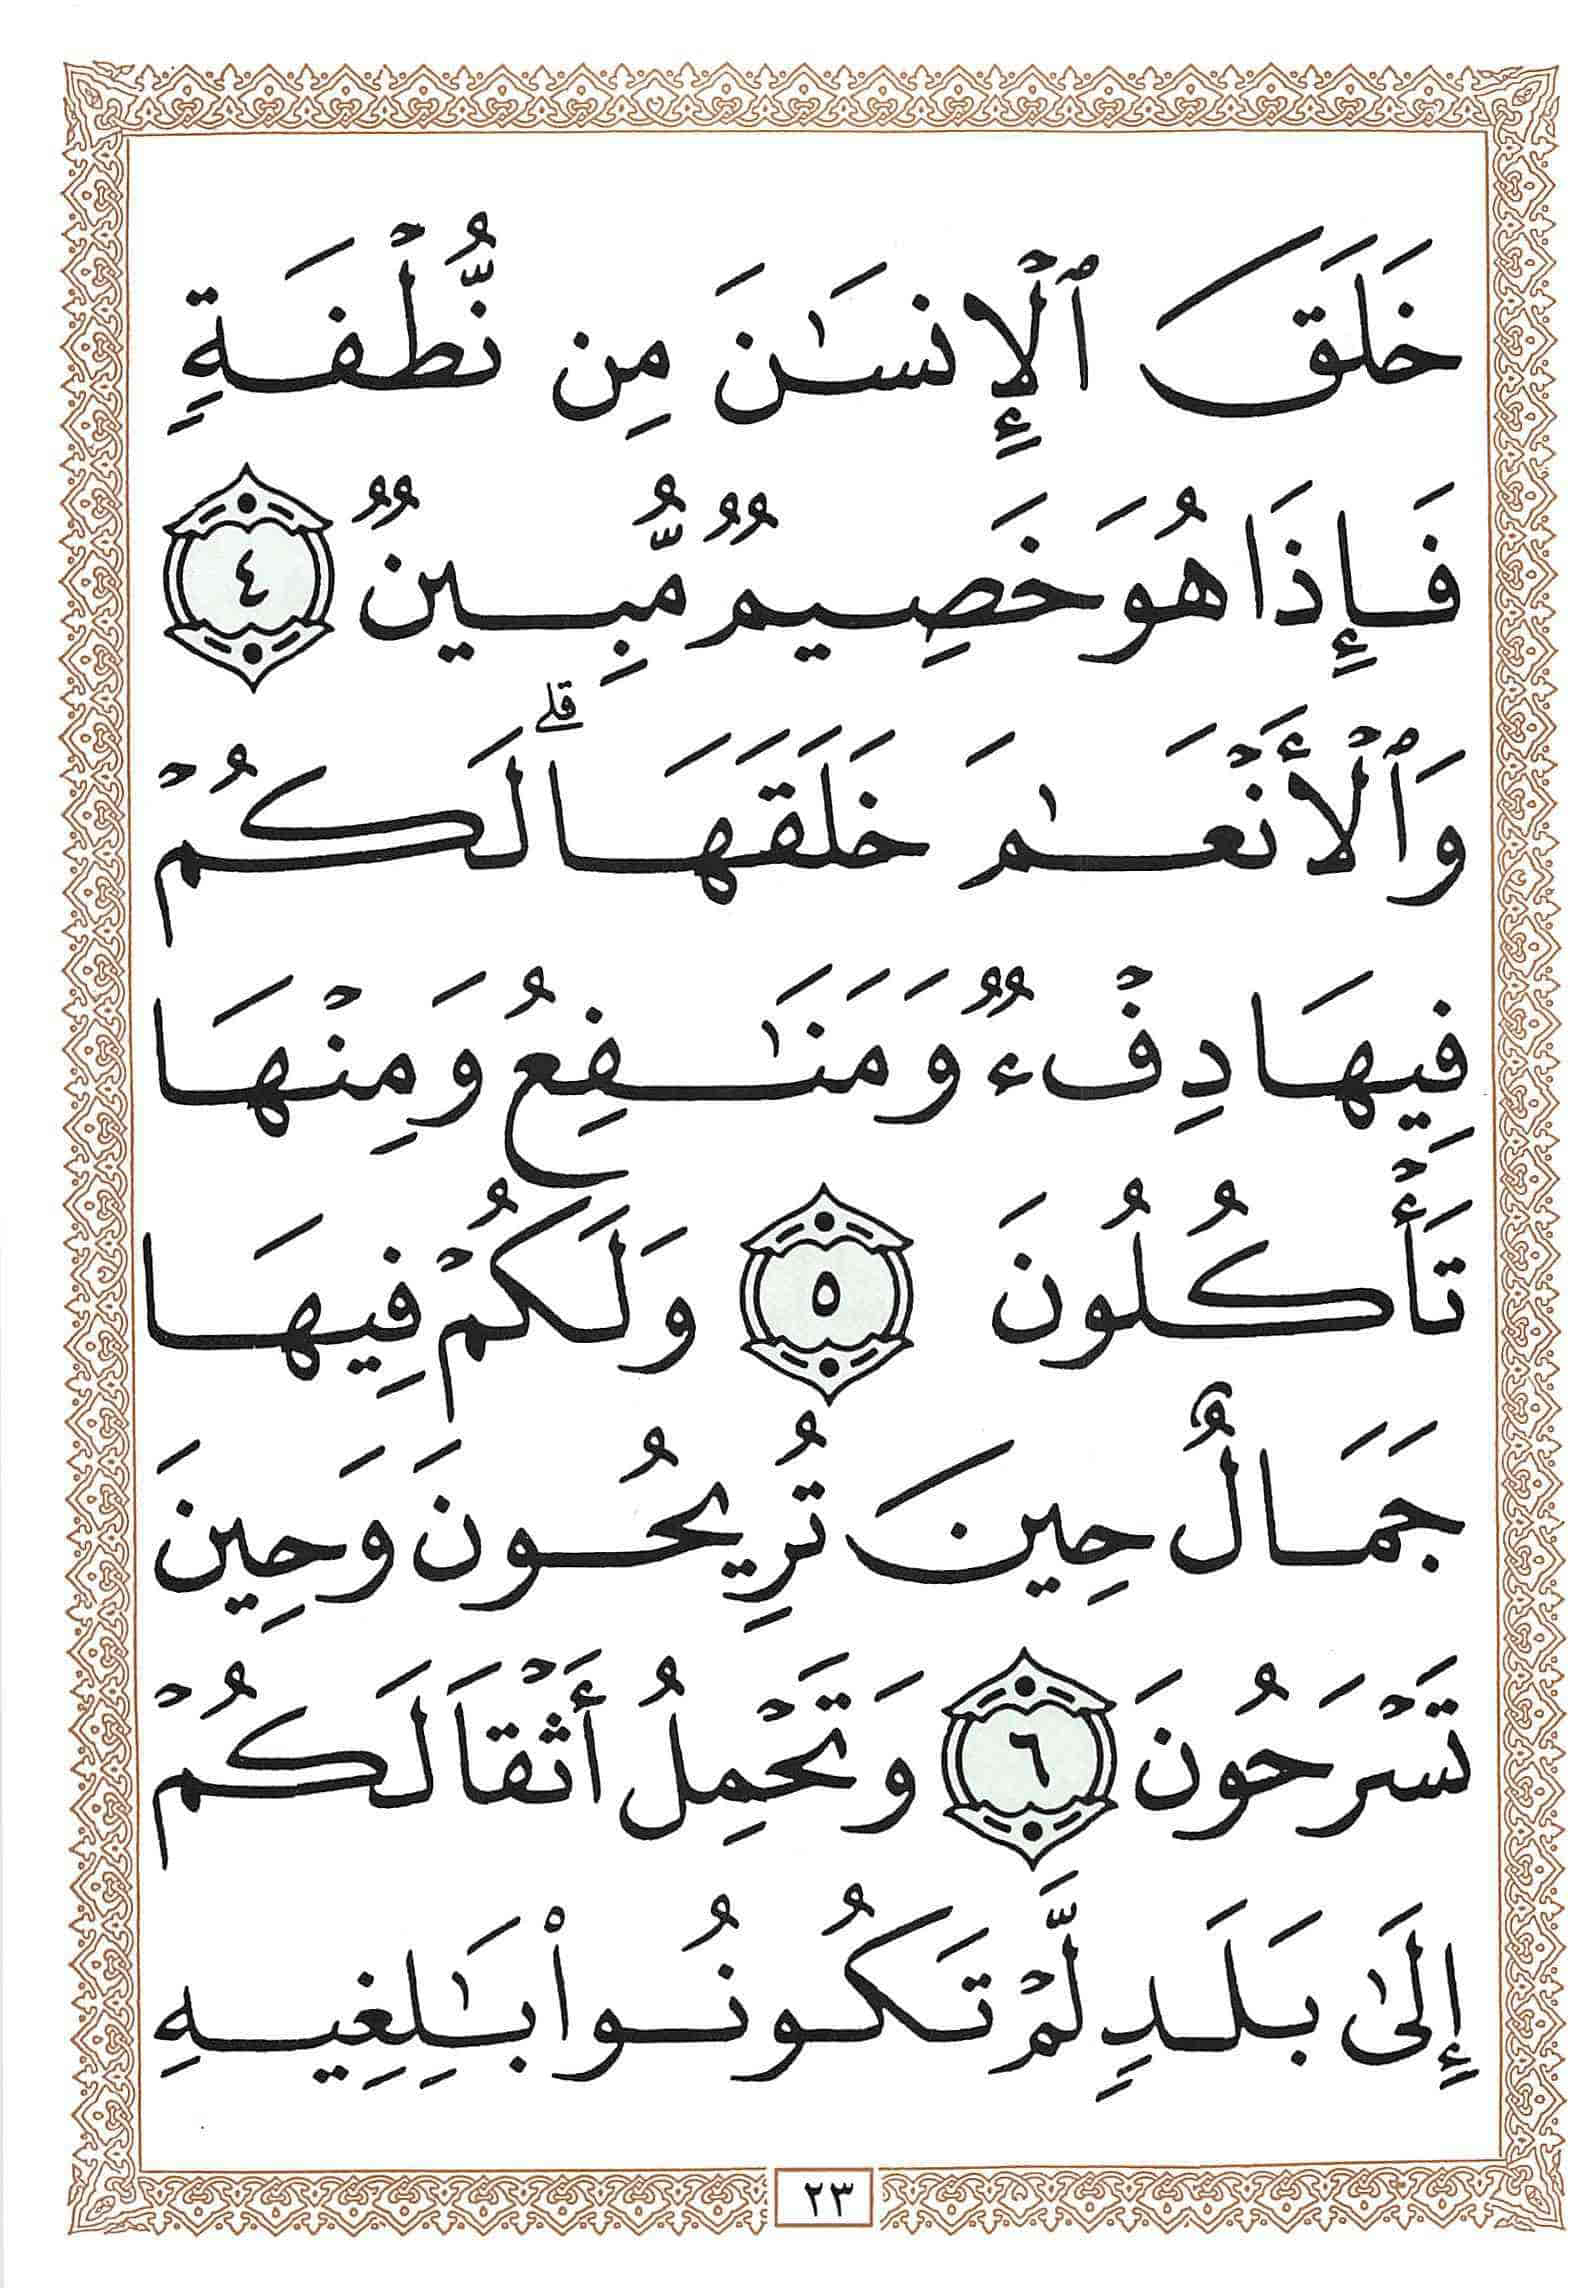 خَلَقَ ٱلْإِنسَٰنَ مِن نُّطْفَةٍ
فَإِذَا هُوَ خَصِيمٌ مُّبِينٌ ٤
وَٱلْأَنْعَٰمَ خَلَقَهَا ۗ لَكُمْ
فِيهَا دِفْءٌ وَمَنَٰفِعُ وَمِنْهَا
تَأْكُلُونَ ٥ وَلَكُمْ فِيهَا
جَمَالٌ حِينَ تُرِيحُونَ وَحِينَ
تَسْرَحُونَ ٦ وَتَحْمِلُ أَثْقَالَكُمْ
إِلَىٰ بَلَدٍ لَّمْ تَكُونُوا۟ بَٰلِغِيهِ
٢٣